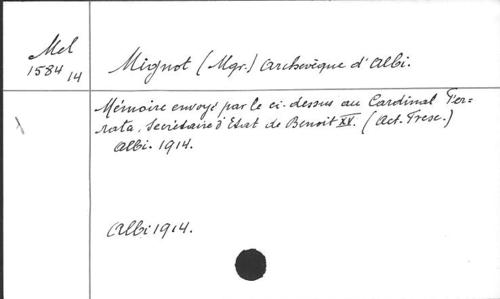 Mel
1584
14
Mignot (Mgr.) Archevêque d'Albi.
Mémoire envoyé par le ci-dessus au Cardinal Fer=
rata, Secrétaire d'Etat de Benoit XV. (Act. Presc.)
Albi. 1914.
Albi 1914.